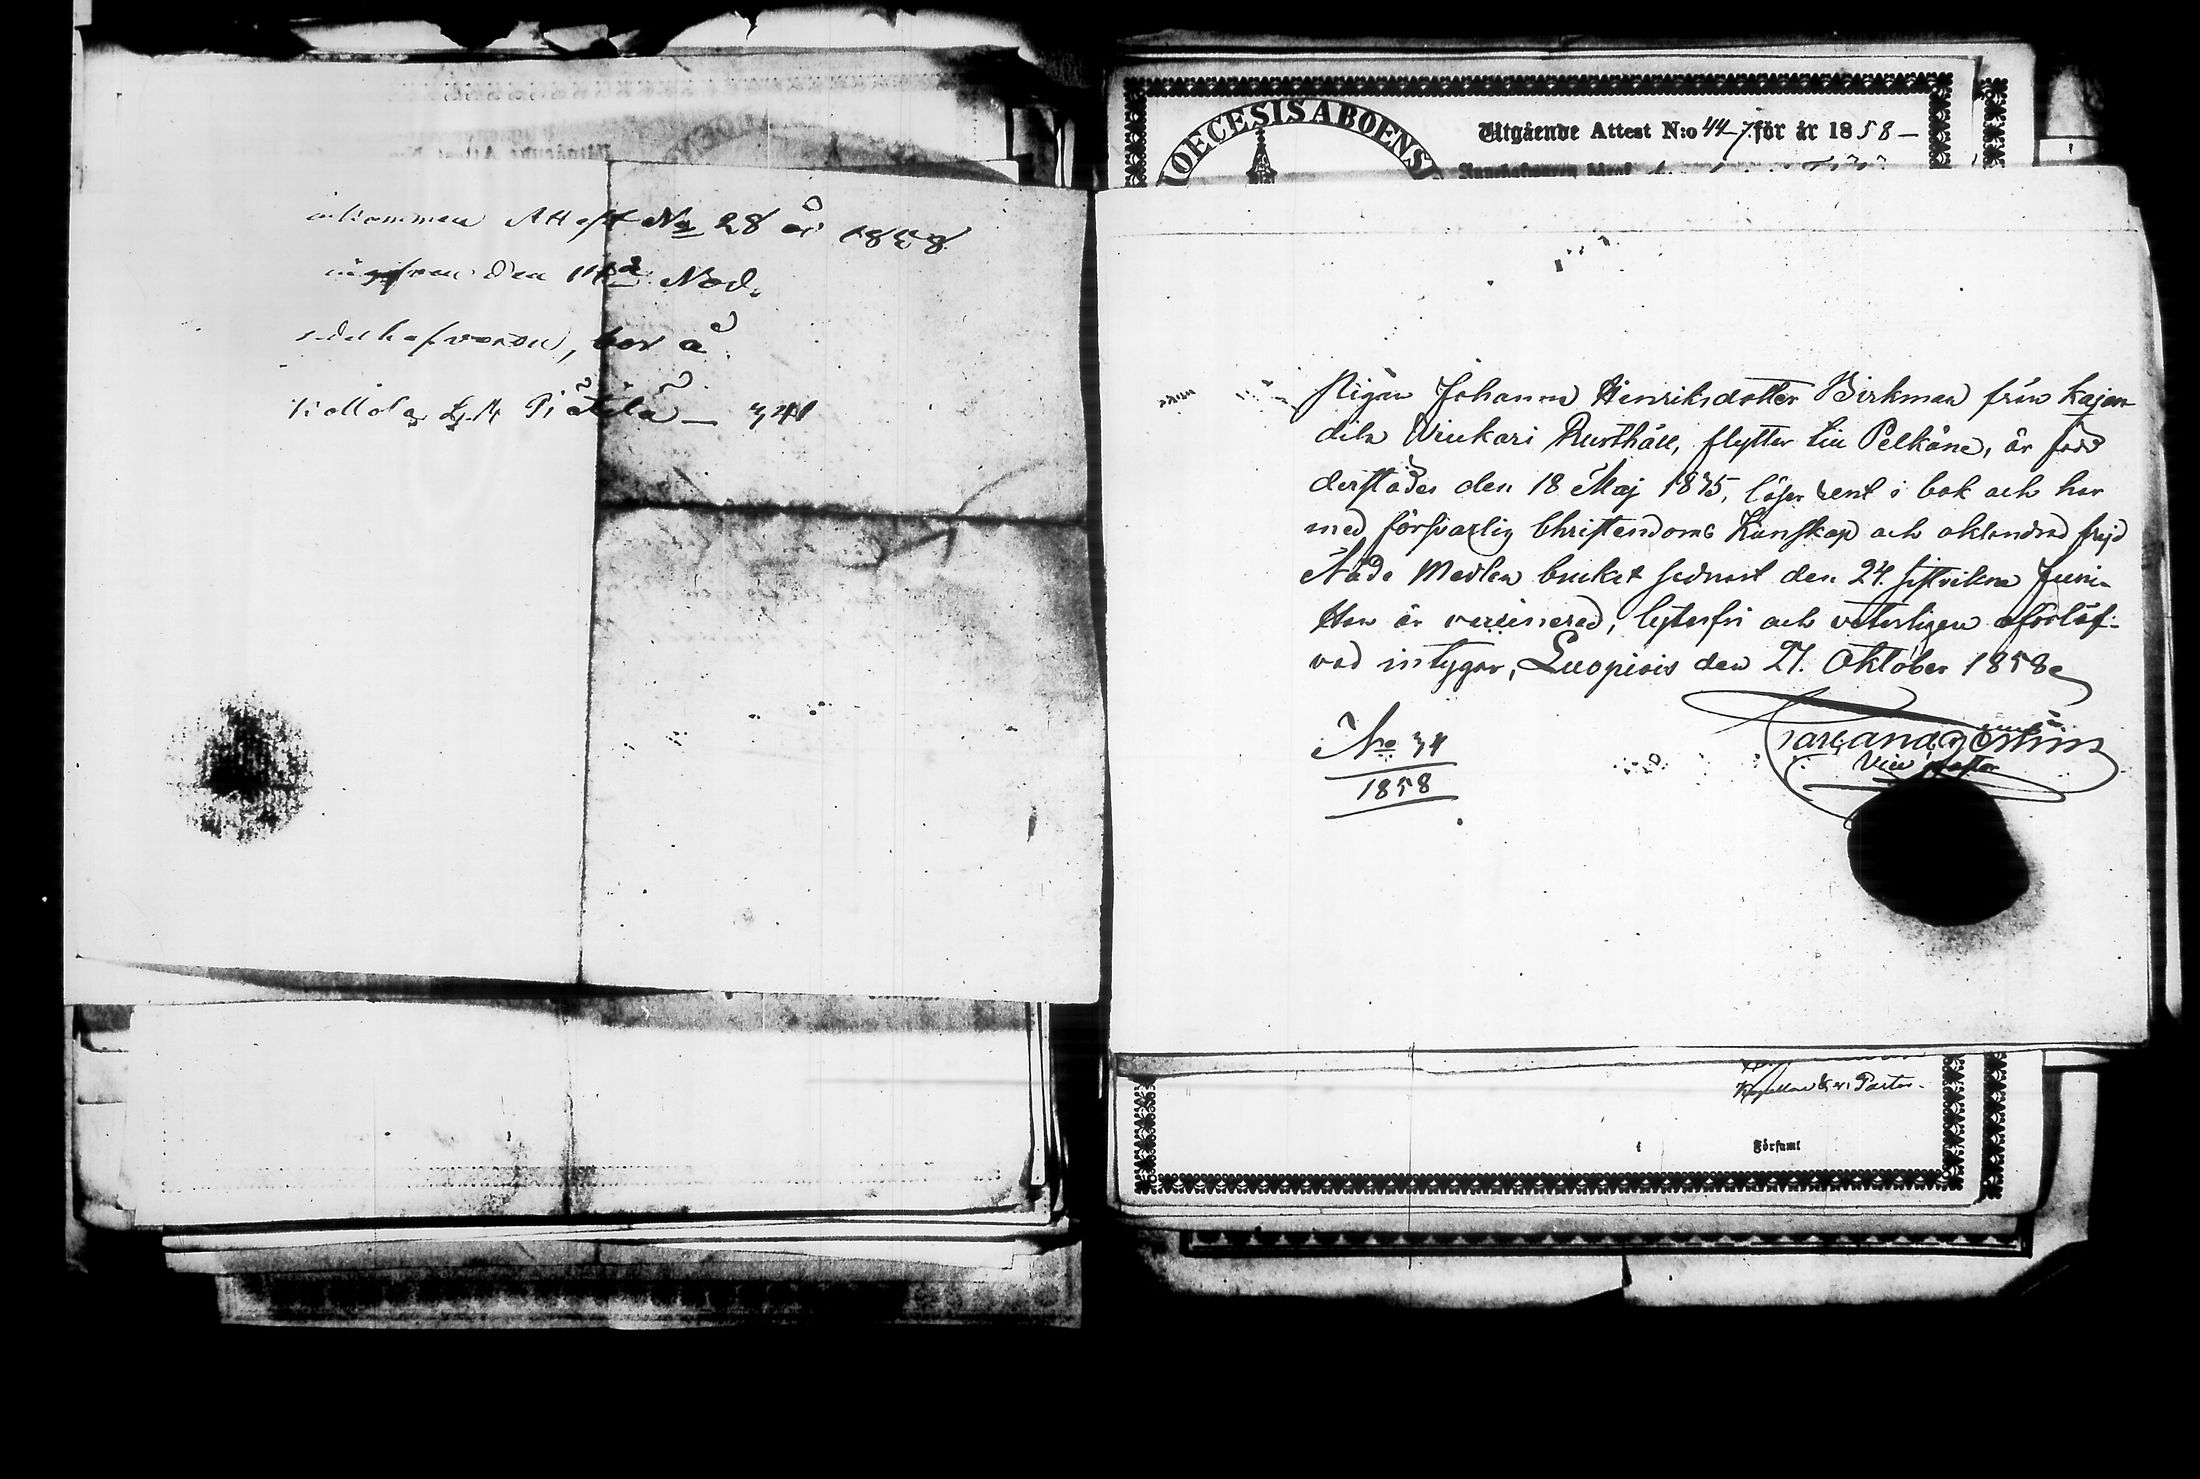 inkommen Attest No 28 år 1858
den 14de Nov.
bor å
341
DIOECESIS ABOENSI
Utgående Attest N:o 447 för år 1858 —
Pigan Johanna Henriksdotter Birkman från Kajan-
dila Wiukari Rusthåll, flyttar till Pelkäne, är född
derstädes den 18 Maj 1835, läser rent i bok och har
med försvarlig Christendoms Kunskap och oklandrad frejd
Nåde Medlen brukat sednast den 24. sistvikne Juni.
Hon är vaccinerad, lytesfri och veterligen oförlof-
vad intygar, Luopiois den 27. Oktober 1858
Vice pastor
No 34
1858
Kapellan & v. Pastor.
i Församl